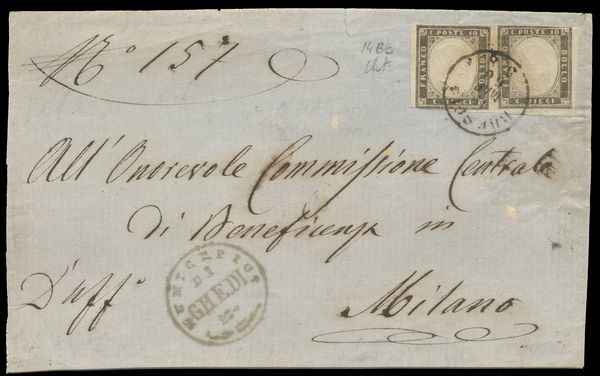 N.º 157
14Bo
C. POSTE 10
FRANCO
BOLLO
C. DIECI
C. POSTE 10
FRANCO
BOLLO
C. DIECI
All' Onorevole Commissione Centrale
di Beneficenza in
MUNICIPIO
DI
GHEDI
D'uff.º
Milano